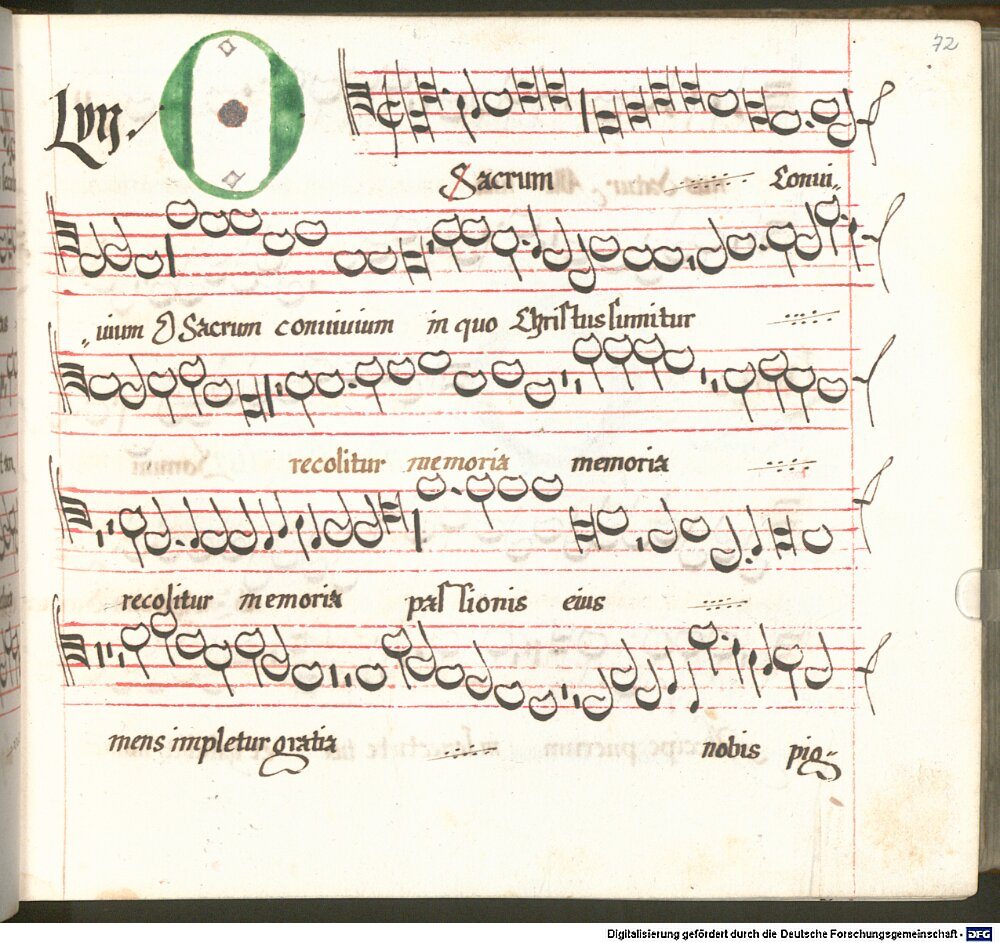 72
O
Sacrum Conui-
uium O Sacrum conuiuium in quo Christus sumitur
recolitur memoria memoria
recolitur memoria passionis eius
mens impletur gratia nobis pig-
Digitalisierung gefördert durch die Deutsche Forschungsgemeinschaft - DFG